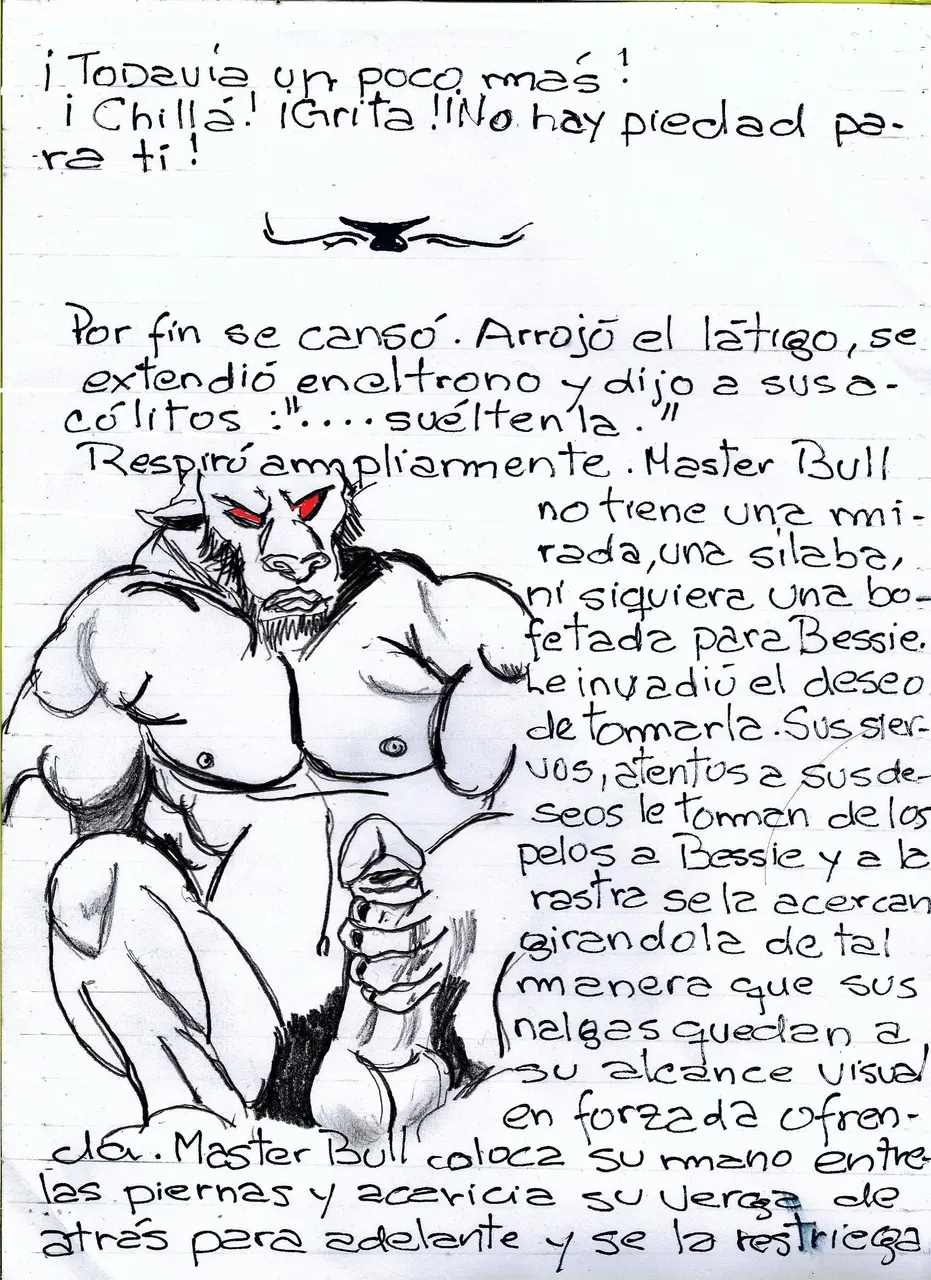 ¡Todavía un poco más!
¡Chillá! ¡Grita! ¡No hay piedad pa-
ra ti!
Por fín se cansó. Arrojó el látigo, se
extendió en el trono y dijo a sus a-
cólitos :"....suéltenla."
Respiró ampliamente. Master Bull
no tiene una mi-
rada, una sílaba,
ni siquiera una bo-
fetada para Bessie.
Le invadió el deseo
de tomarla. Sus sier-
vos, atentos a sus de-
seos le toman de los
pelos a Bessie y a la
rastra se la acercan
girandola de tal
manera que sus
nalgas quedan a
su alcance visual
en forzada ofren-
da. Master Bull coloca su mano entre
las piernas y acaricia su verga de
atrás para adelante y se la restriega